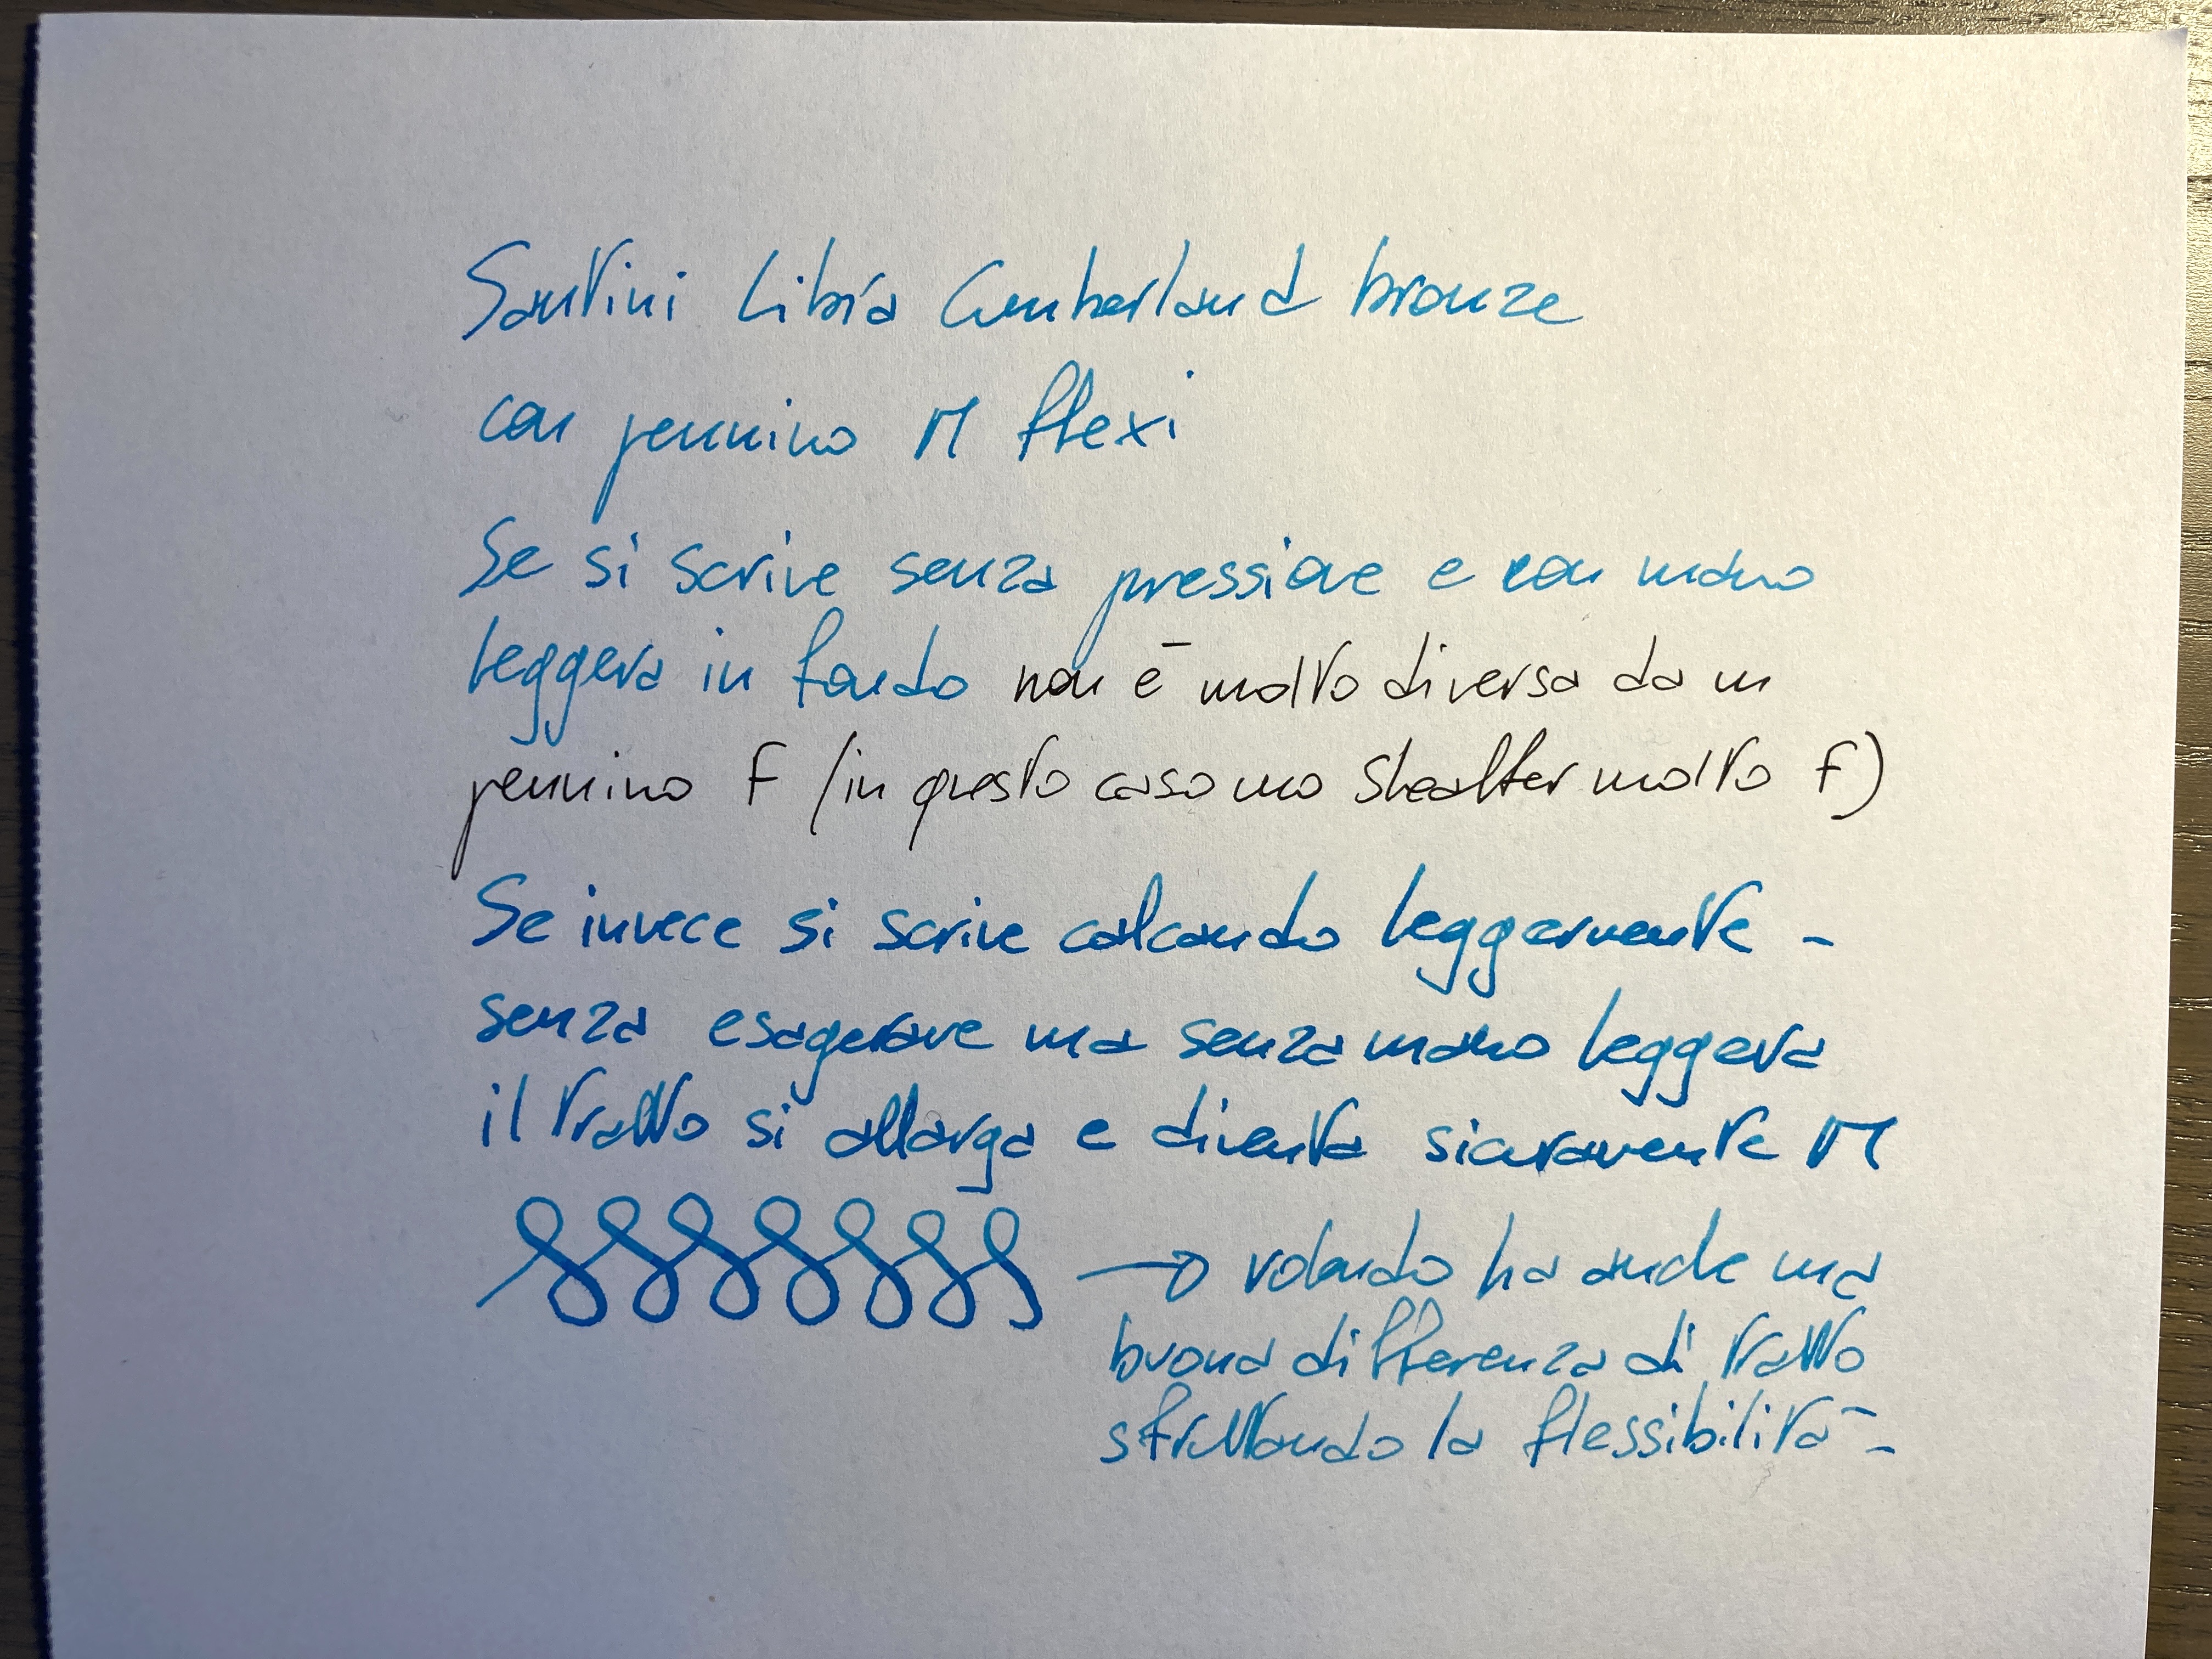 Santini Libra Cumberland bronze
con pennino M flexi
Se si scrive senza pressione e con mano
leggera in fondo non è molto diversa da un
pennino F (in questo caso uno Sheaffer molto F)
Se invece si scrive calcando leggermente -
senza esagerare ma senza mano leggera
il tratto si allarga e diventa sicuramente M
volendo ha anche una
buona differenza di tratto
sfruttando la flessibilità -